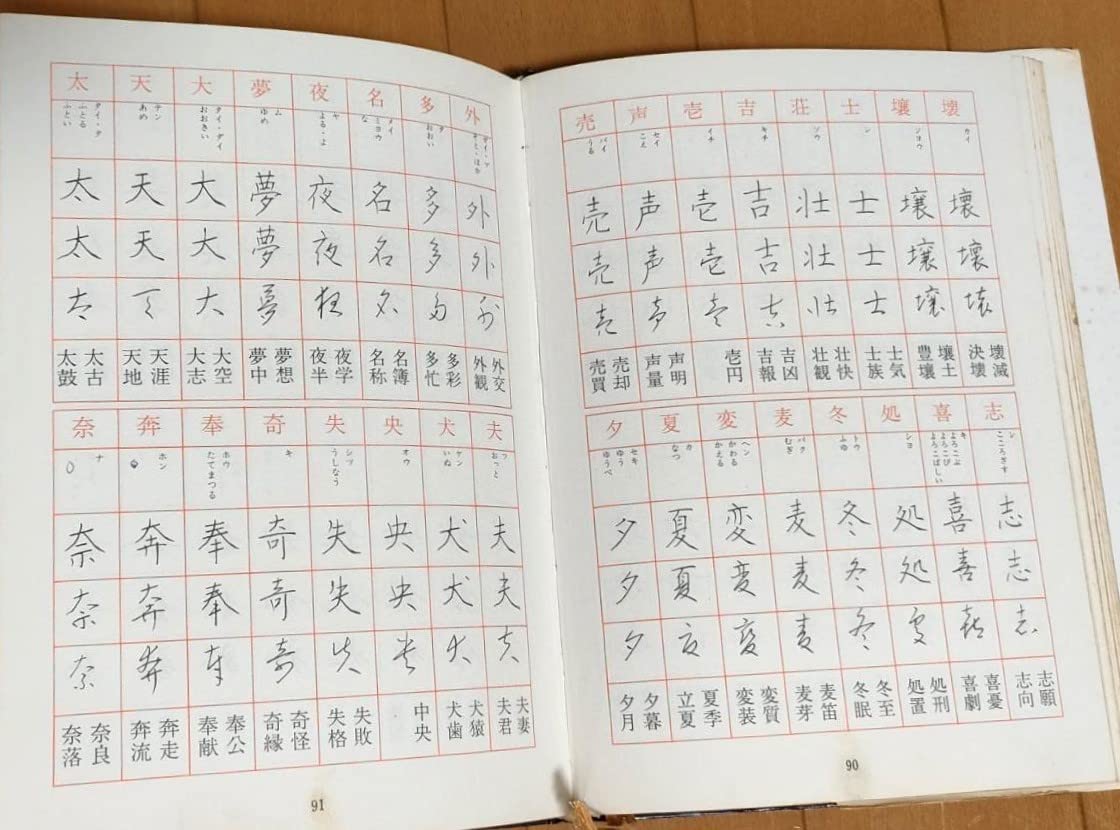 壊
カイ
壊
壊
壊
壊滅
決壊
壌
ジョウ
壌
壌
壌
壌土
豊壌
士
シ
士
士
士
士気
士族
壮
ソウ
壮
壮
壮
壮快
壮観
吉
キチ
吉
吉
吉
吉凶
吉報
壱
イチ
壱
壱
壱
壱円
声
セイ
こえ
声
声
声
声明
声量
売
バイ
うる
売
売
売
売却
売買
志
シ
こころざす
志
志
志
志願
志向
喜
キ
よろこぶ
よろこび
よろこばしい
喜
喜
喜
喜憂
喜劇
処
ショ
処
処
処
処刑
処置
冬
トウ
ふゆ
冬
冬
冬
冬至
冬眠
麦
バク
むぎ
麦
麦
麦
麦笛
麦芽
変
ヘン
かわる
かえる
変
変
変
変質
変装
夏
カ
なつ
夏
夏
夏
夏季
立夏
夕
セキ
ゆう
ゆうべ
夕
夕
夕
夕暮
夕月
90
外
ガイ・ゲ
そと・ほか
外
外
外
外交
外観
多
タ
おおい
多
多
多
多彩
多忙
名
メイ
ミョウ
な
名
名
名
名簿
名称
夜
ヤ
よる・よ
夜
夜
夜
夜学
夜半
夢
ム
ゆめ
夢
夢
夢
夢想
夢中
大
タイ・ダイ
おおきい
大
大
大
大空
大志
天
テン
あめ
天
天
天
天涯
天地
太
タイ・タ
ふとる
ふとい
太
太
太
太古
太鼓
夫
フ
おっと
夫
夫
夫
夫妻
夫君
犬
ケン
いぬ
犬
犬
犬
犬猿
犬歯
央
オウ
央
央
央
中央
失
シツ
うしなう
失
失
失
失敗
失格
奇
キ
奇
奇
奇
奇怪
奇縁
奉
ホウ
たてまつる
奉
奉
奉
奉公
奉献
奔
ホン
奔
奔
奔
奔走
奔流
奈
ナ
奈
奈
奈
奈良
奈落
91